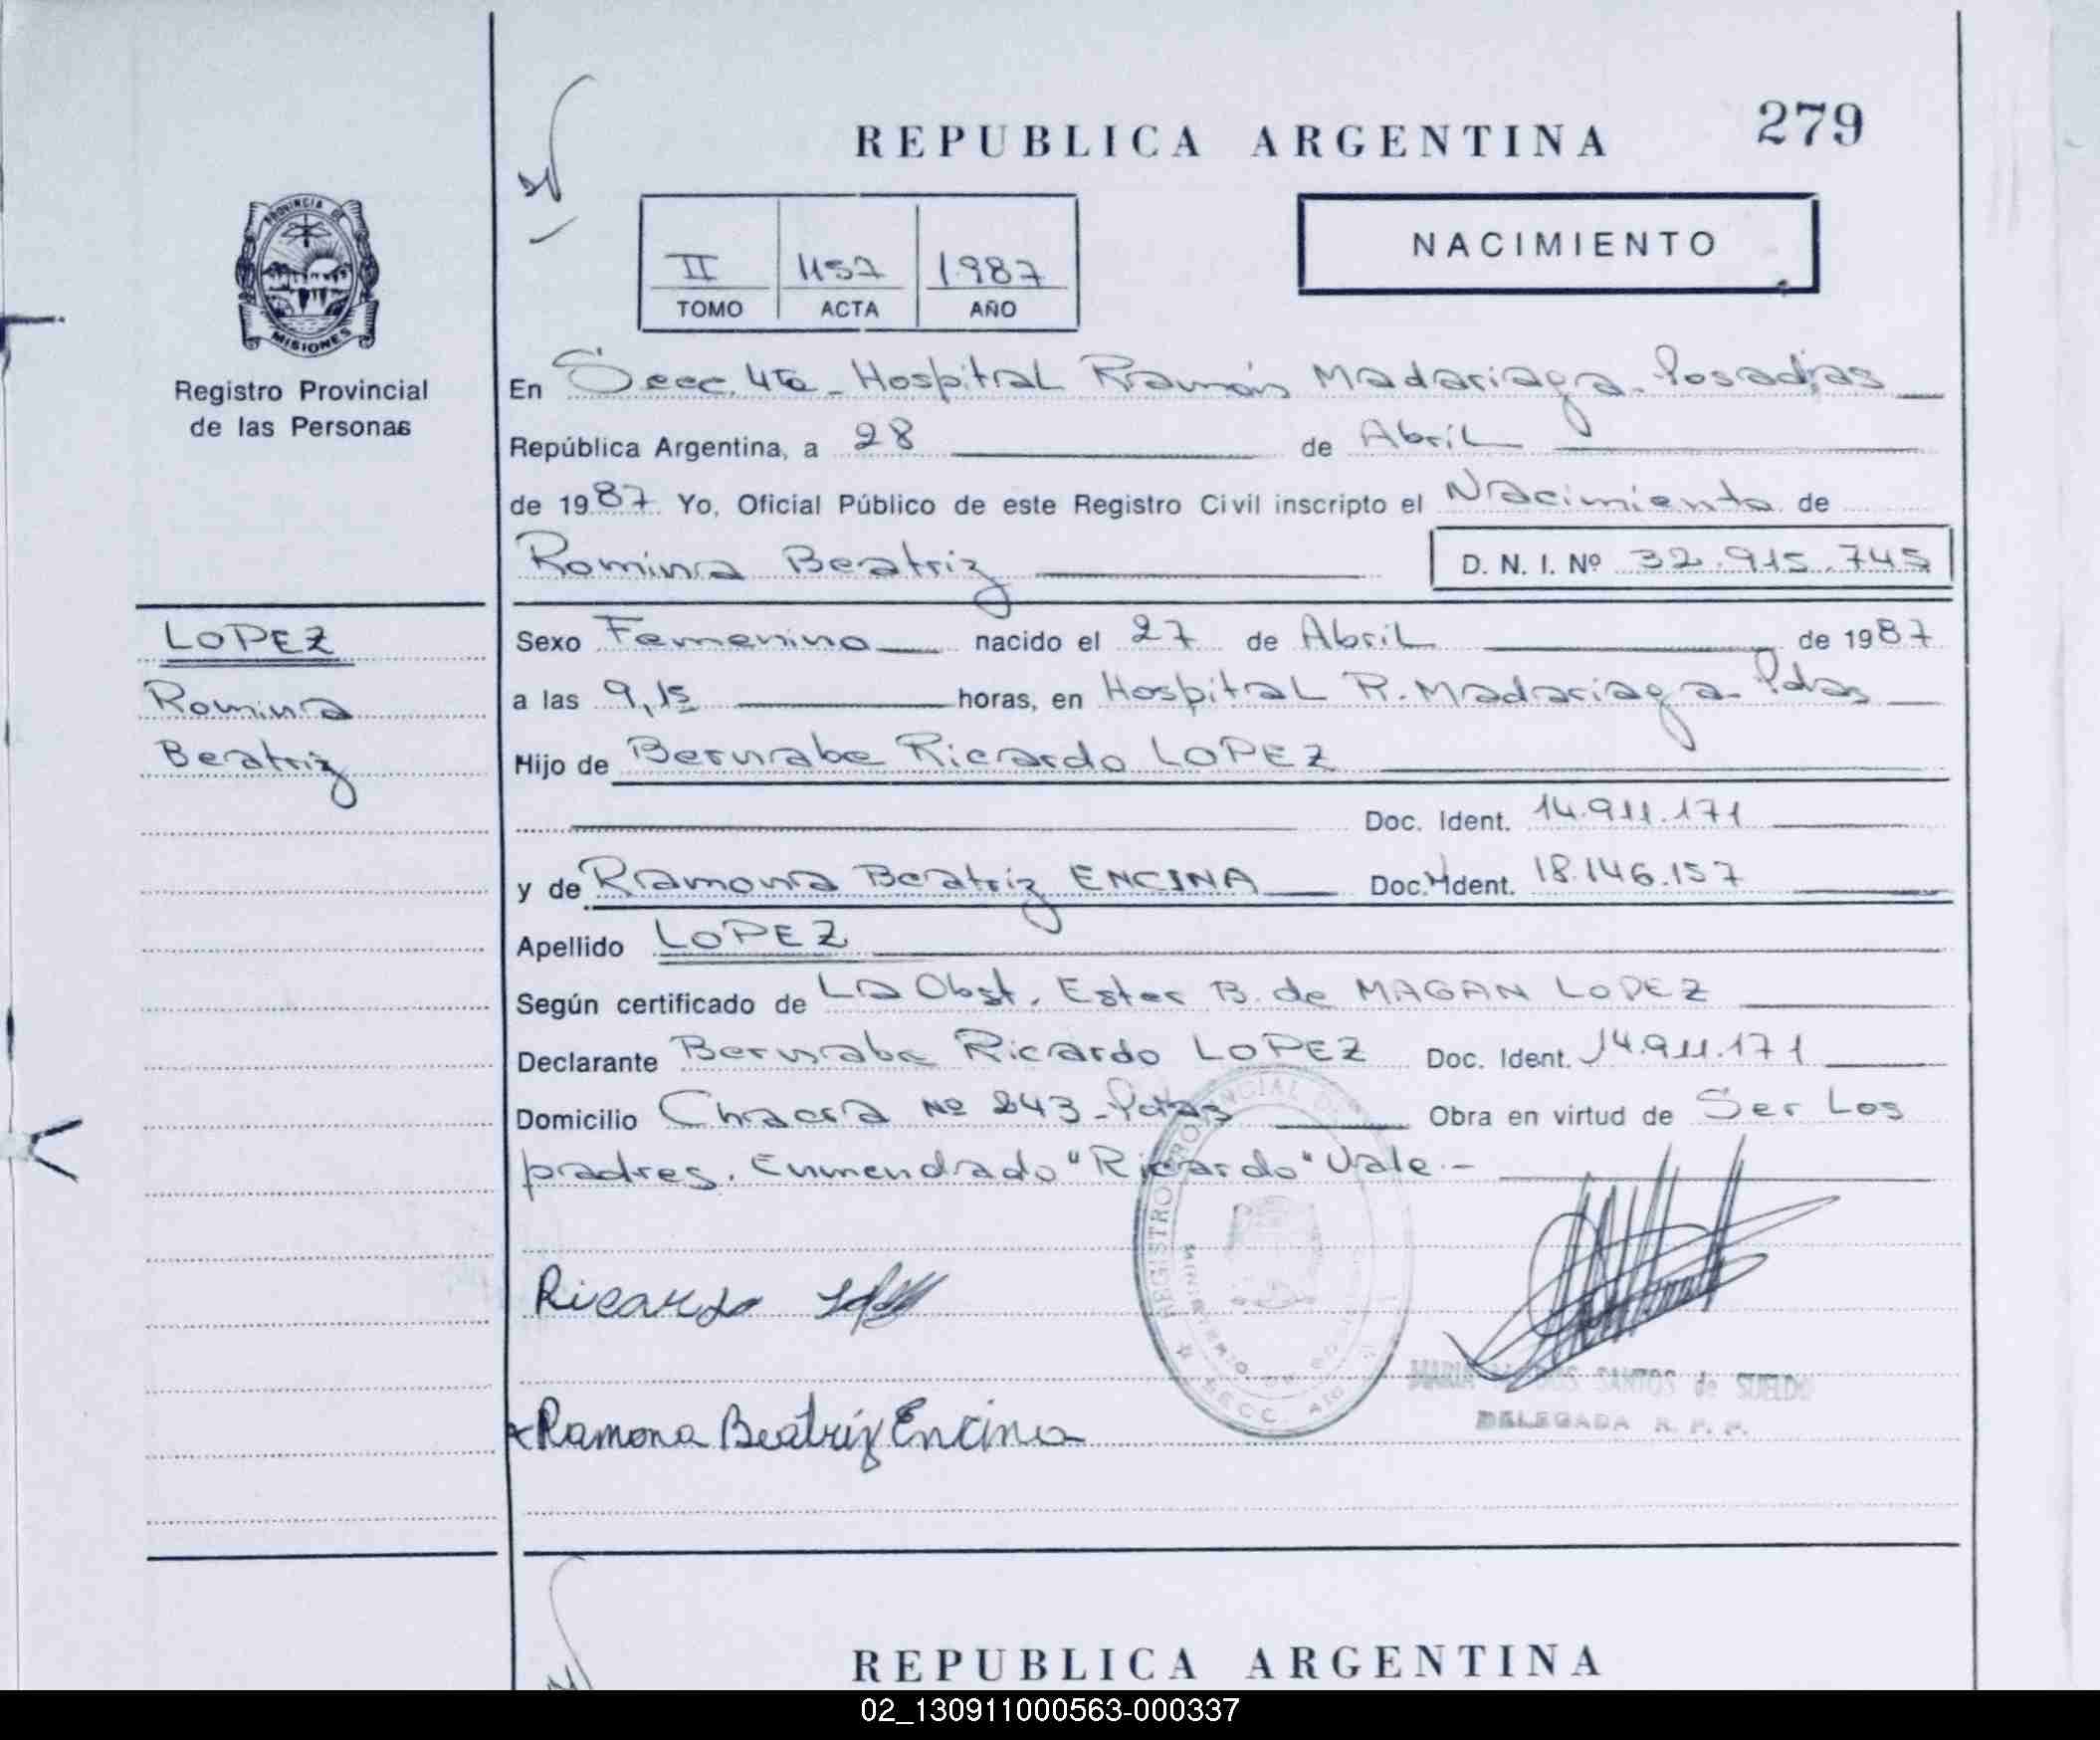 REPUBLICA ARGENTINA
279
PROVINCIA DE
MISIONES
Registro Provincial
de las Personas
II
1157
1987
TOMO
ACTA
AÑO
NACIMIENTO
En Secc. 4ta - Hospital Ramón Madariaga - Posadas
República Argentina, a 28 de Abril
de 1987. Yo, Oficial Público de este Registro Civil inscripto el Nacimiento de
Romina Beatriz
D. N. I. Nº 32.915.745
LOPEZ
Romina
Beatriz
Sexo Femenino nacido el 27 de Abril de 1987
a las 9,15 horas, en Hospital R. Madariaga - Pdas
Hijo de Bernabe Ricardo LOPEZ
Doc. Ident. 14.911.171
y de Ramona Beatriz ENCINA Doc. Ident. 18.146.157
Apellido LOPEZ
Según certificado de La Obst. Ester B. de MAGAN LOPEZ
Declarante Bernabe Ricardo LOPEZ Doc. Ident. 14.911.171
Domicilio Chacra Nº 243 - Pdas Obra en virtud de Ser Los
padres. Enmendado "Ricardo" Vale.-
REGISTRO PROVINCIAL DE
MINISTERIO DE
SECC.
Ricardo
Ramona Beatriz Encina
MARIA DOS SANTOS de SUELDO
DELEGADA R. P. P.
REPUBLICA ARGENTINA
02_130911000563-000337